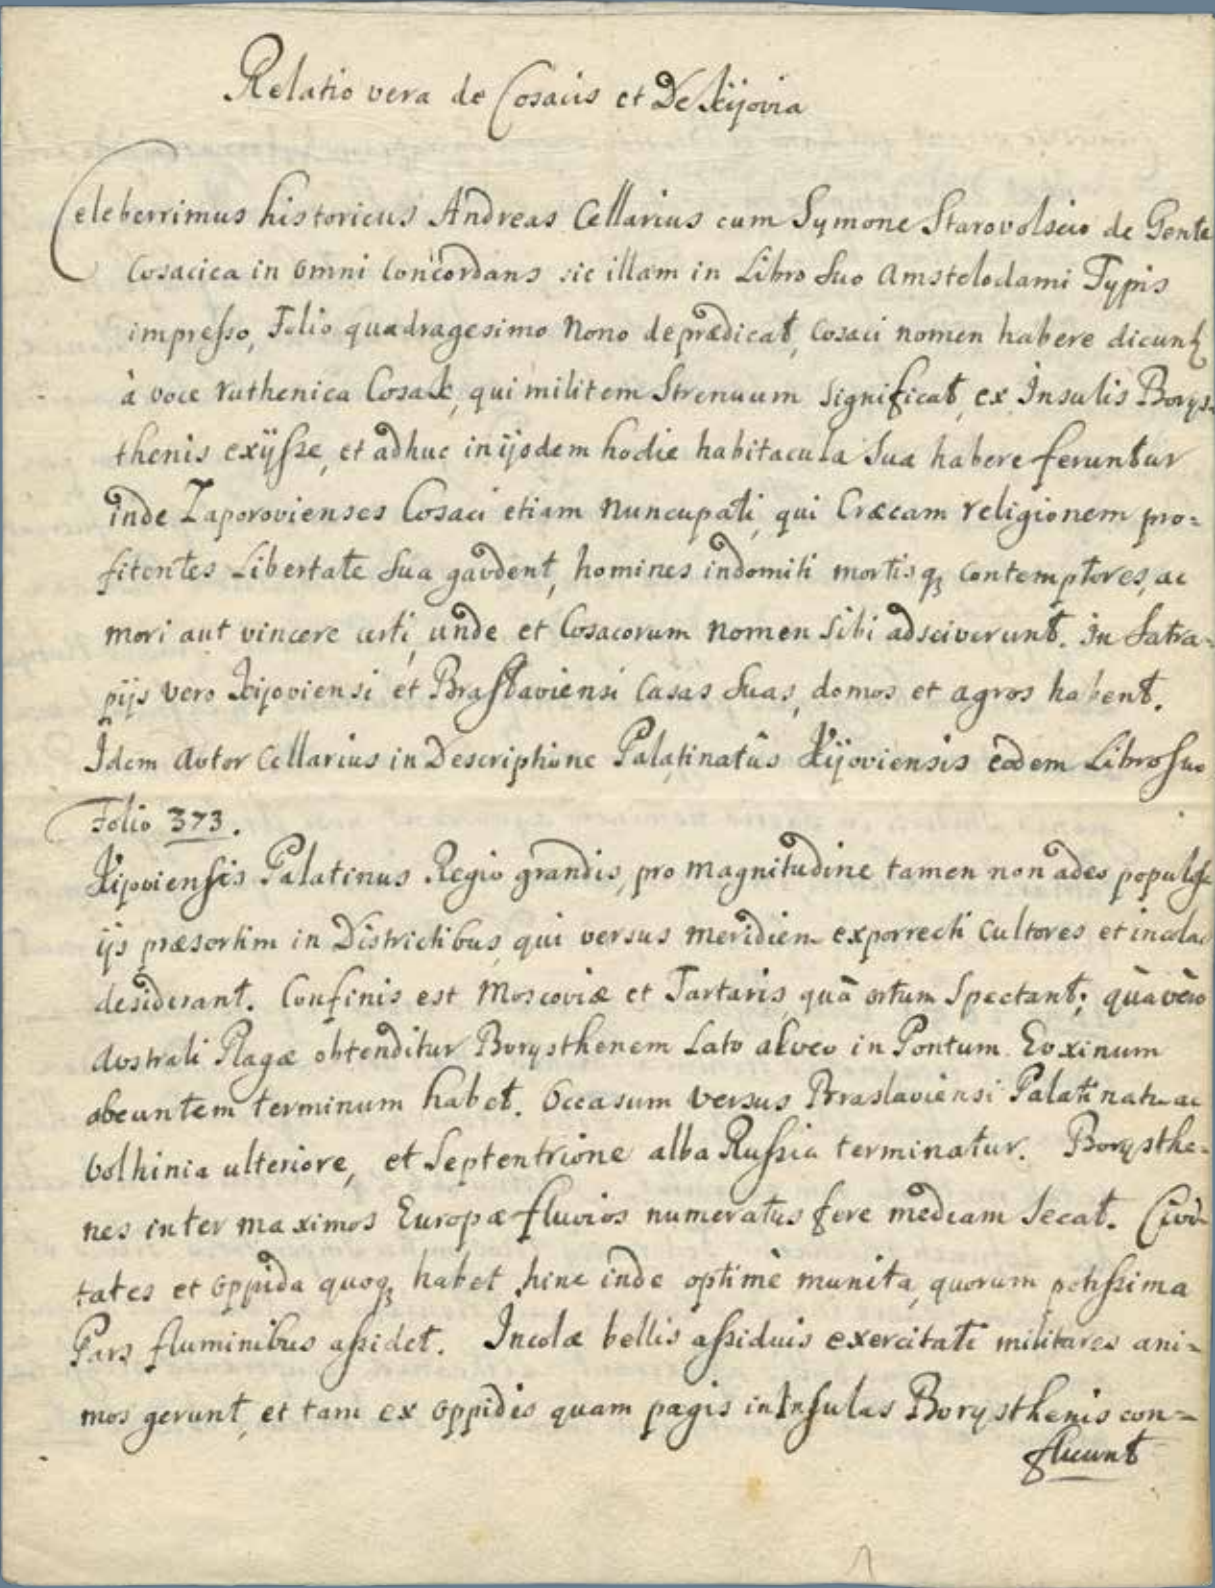 Relatio vera de Cosacis et De Kijovia
Celeberrimus historicus Andreas Cellarius cum Symone Starovolscio de Gente
Cosacica in omni Concordans sic illam in Libro Suo Amstelodami Typis
impresso, Folio quadragesimo Nono depraedicat, Cosaci nomen habere dicunt
à voce ruthenica Cosak, qui militem Strenuum significat, ex Insulis Borys-
thenis exijsse, et adhuc in ijsdem hodie habitacula Sua habere feruntur
inde Zaporovienses Cosaci etiam Nuncupati, qui Graecam religionem pro=
fitentes Libertate Sua gaudent, homines indomiti mortisq; contemptores, ac
mori aut vincere certi, unde et Cosacorum nomen Sibi adsciverunt. in Satra=
pijs vero Kijoviensi et Braslaviensi Casas Suas, domos et agros habent.
Idem Autor Cellarius in Descriptione Palatinatûs Kijoviensis eodem Libro Suo
Folio 373.
Kijoviensis Palatinus Regio grandis, pro magnitudine tamen non adeo populosa
ijs praesertim in Districtibus, qui versus meridiem exporrecti Cultores et incolas
desiderant. Confinis est Moscoviae et Tartaris, quâ ortum Spectant; quà vero
Australi Plagae obtenditur Borysthenem Lato alveo in Pontum Euxinum
abeuntem terminum habet. Occasum versus Braslaviensi Palatinatu ac
Volhinia ulteriore, et Septentrione alba Russia terminatur. Borysthe=
nes inter maximos Europae fluvios numeratus fere mediam Secat. Civi-
tates et Oppida quoq; habet hinc inde optimè munita, quorum potissima
Pars fluminibus assidet. Incolae bellis assiduis exercitati militares ani=
mos gerunt, et tam ex Oppidis quam pagis in Insulas Borysthenis con=
fluunt